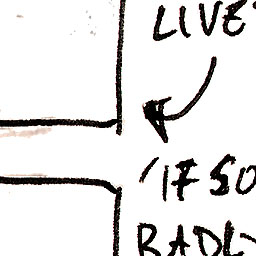 LIVE
'IF SO
BADLY